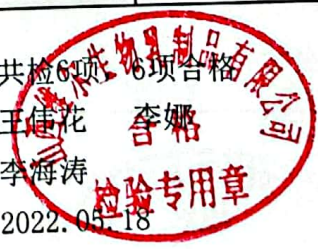 共检6项，6项合格
王伟花 李娜
李海涛
2022.05.18
生物乳制品有限公司
合格
检验专用章